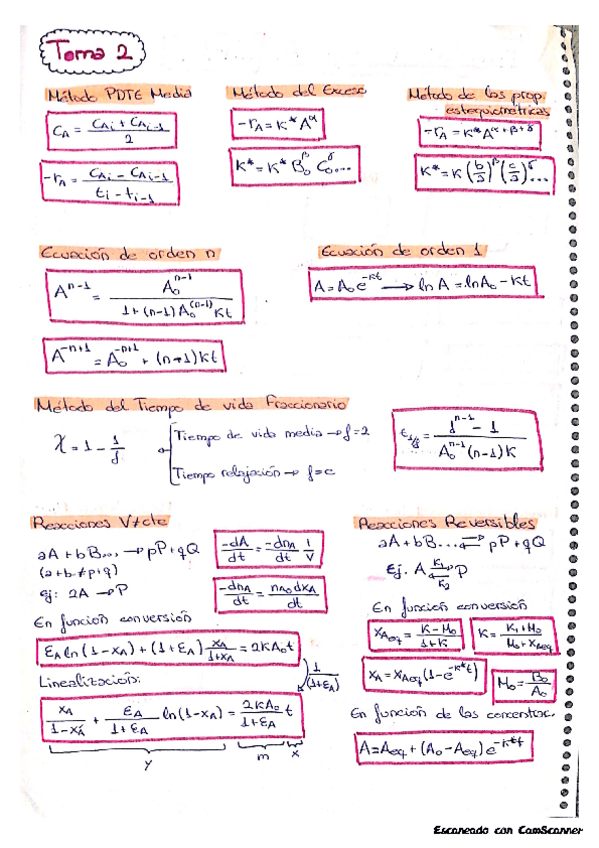 Tema 2
Método PDTE Media
C_A = (C_Ai + C_Ai-1) / 2
-r_A = (C_Ai - C_Ai-1) / (t_i - t_i-1)
Método del Exceso
-r_A = K* A^α
K* = K* B_0^β C_0^γ ...
Método de las prop. estequiométricas
-r_A = K* A^(α+β+γ)
K* = K (b/a)^β (c/a)^γ ...
Ecuación de orden n
A^(n-1) = A_0^(n-1) / (1 + (n-1) A_0^(n-1) Kt)
A^(-n+1) = A_0^(-n+1) + (n-1) Kt
Ecuación de orden 1
A = A_0 e^(-Kt) → ln A = ln A_0 - Kt
Método del Tiempo de vida Fraccionario
X = 1 - 1/f
Tiempo de vida media → f = 2
Tiempo relajación → f = e
t_1/f = (f^(n-1) - 1) / (A_0^(n-1) (n-1) K)
Reacciones V≠cte
aA + bB... → pP + qQ
(a+b ≠ p+q)
ej: 2A → P
-dA/dt = -dn_A/dt 1/V
-dn_A/dt = n_A0 dx_A/dt
En función conversión
ε_A ln(1-x_A) + (1+ε_A) x_A/(1+x_A) = 2KA_0t
Linealización:
1/(1+ε_A)
x_A/(1-x_A) + ε_A/(1+ε_A) ln(1-x_A) = 2KA_0/(1+ε_A) t
y m x
Reacciones Reversibles
aA + bB... ⇄ pP + qQ
Ej. A ⇄ P K_1 K_2
En función conversión
X_Aeq = (K - M_0)/(1+K)
K = (K_1 + M_0)/(M_0 + X_Aeq)
x_A = x_Aeq (1 - e^(-K*t))
M_0 = B_0/A_0
En función de las concentrac.
A = A_eq + (A_0 - A_eq) e^(-K*t)
Escaneado con CamScanner